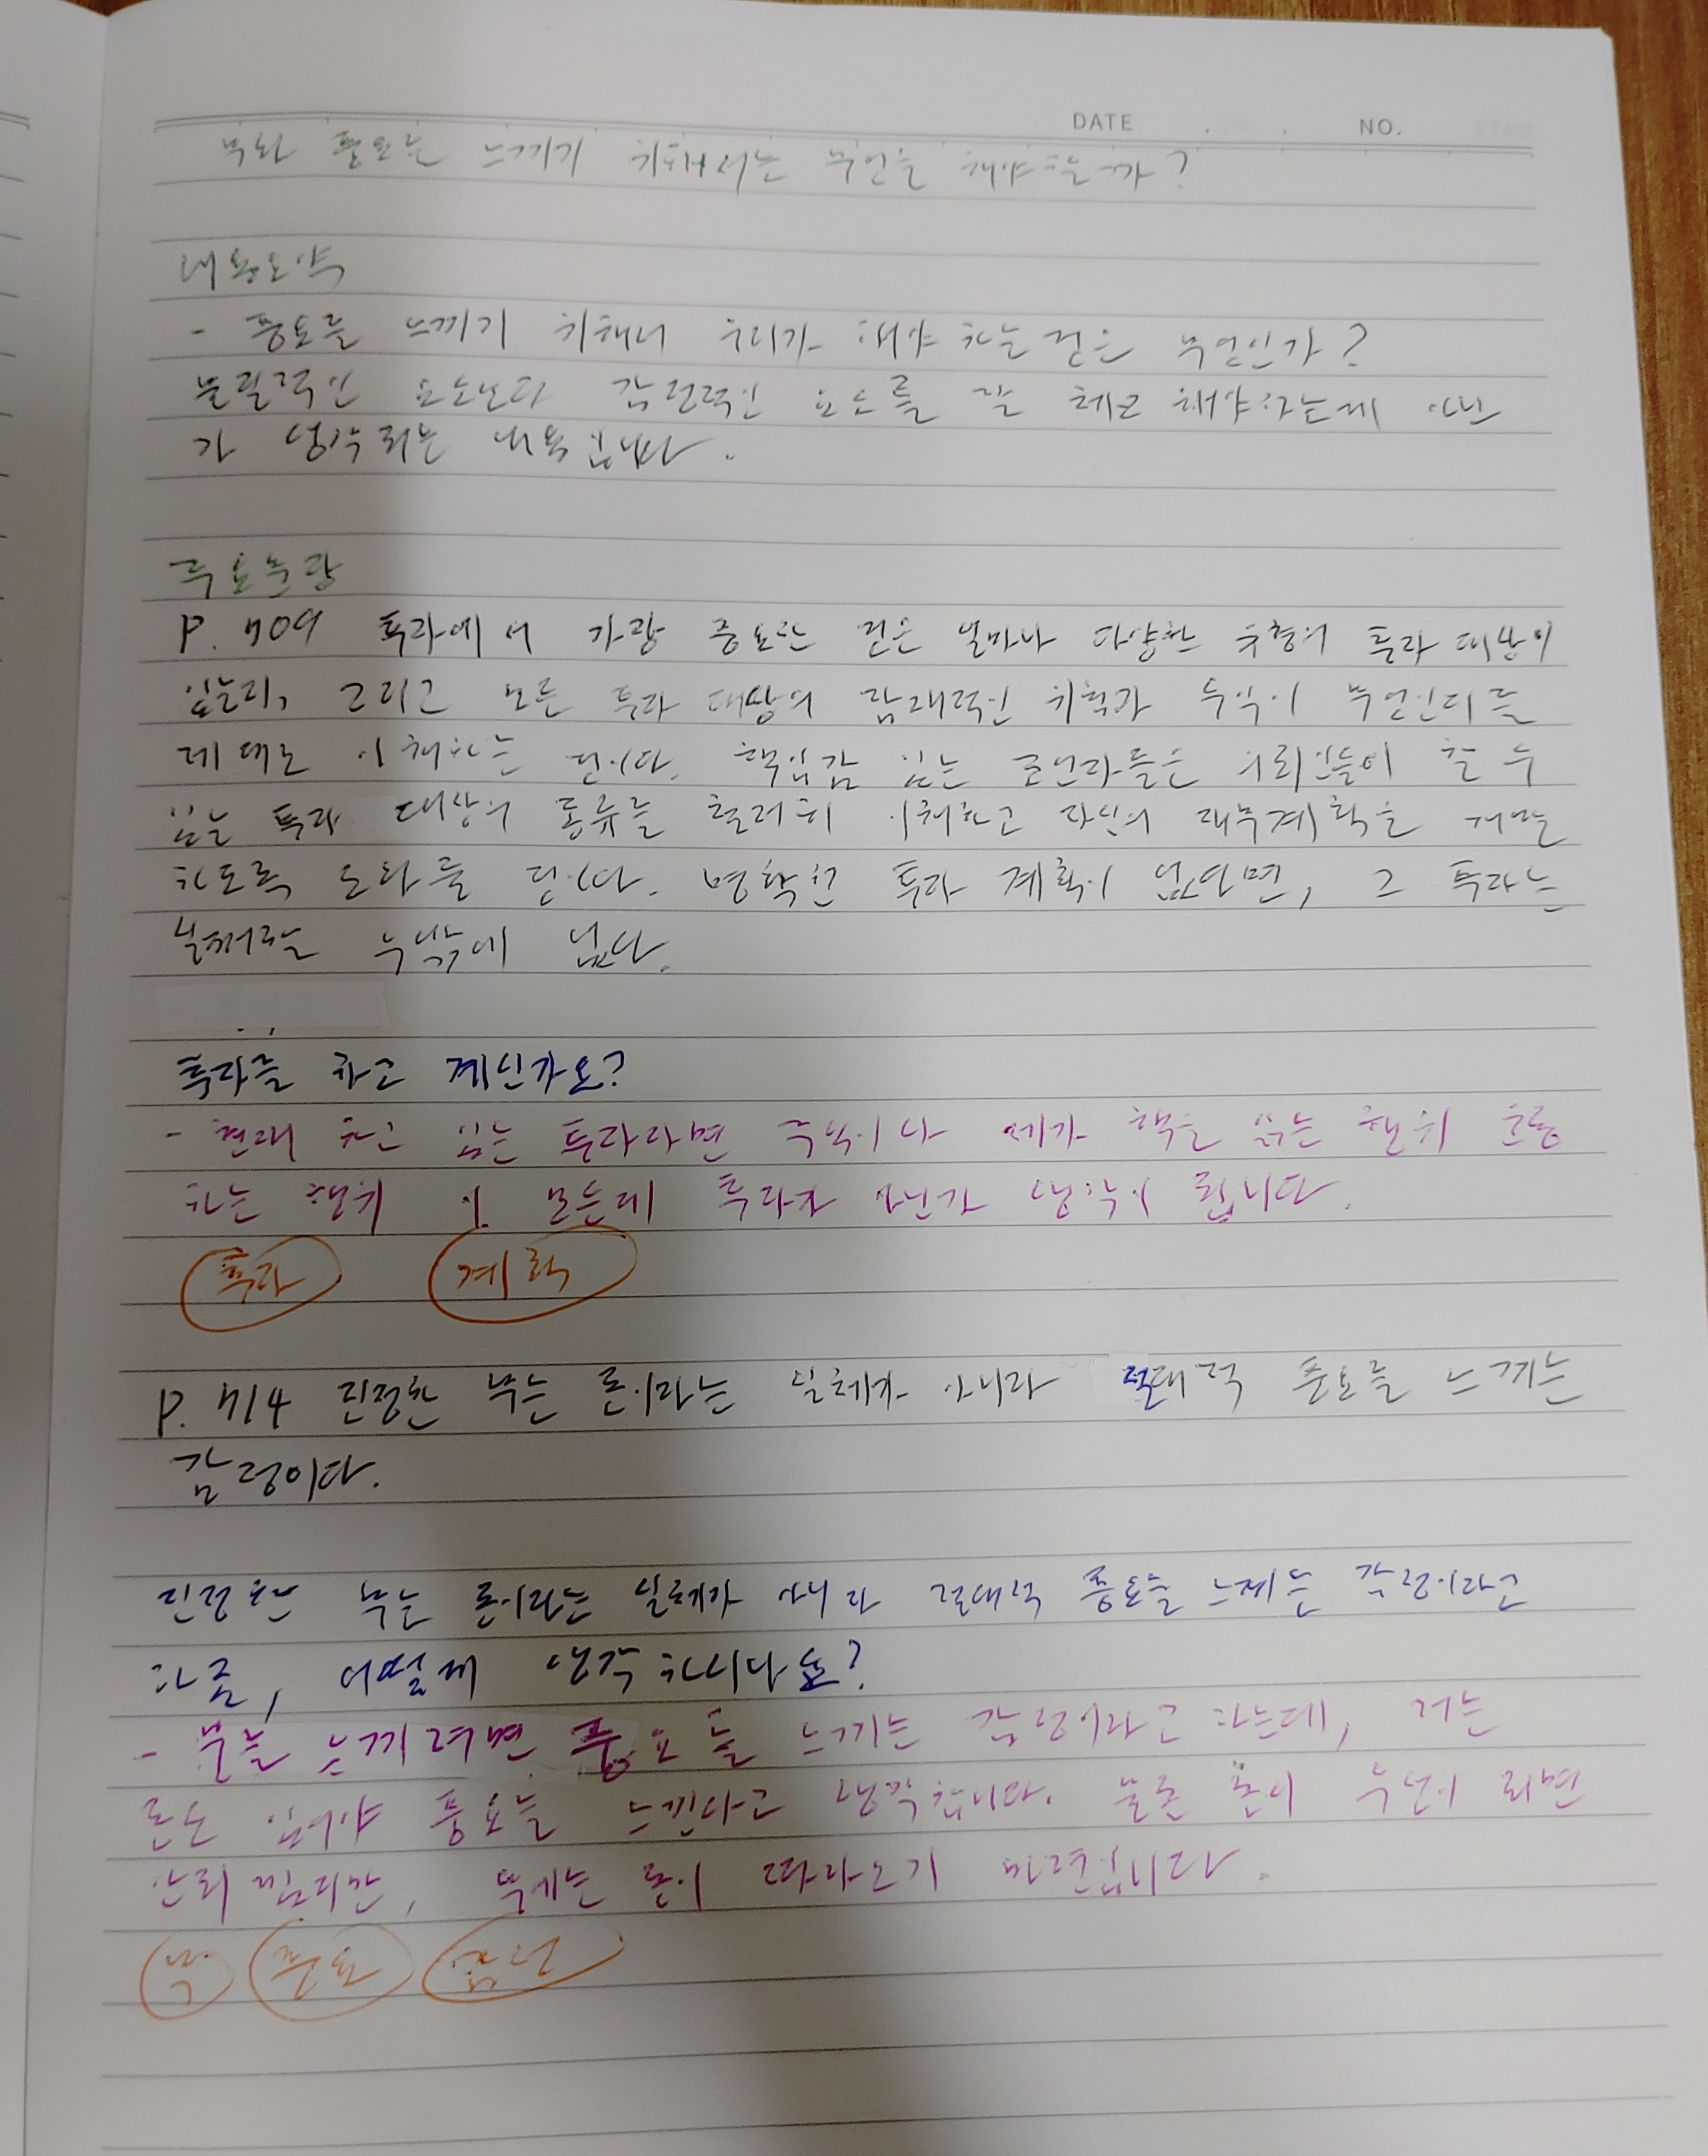 DATE . . NO.
부와 풍요를 느끼기 위해서는 무엇을 해야할까?
내용요약
- 풍요를 느끼기 위해서 우리가 해야 하는 것은 무엇인가?
물질적인 요소보다 감정적인 요소를 잘 체크해야하는게 아닌
가 생각되는 내용입니다.
주요문장
P. 409 투자에서 가장 중요한 것은 얼마나 다양한 유형의 투자 대상이
있는지, 그리고 모든 투자 대상의 잠재적인 위험과 수익이 무엇인지를
제대로 이해하는 것이다. 책임감 있는 조언자들은 의뢰인들이 할 수
있는 투자 대상의 종류를 철저히 이해하고 자신의 재무계획을
하도록 도와줄 것이다. 명확한 투자 계획이 없다면, 그 투자는
실패할 수밖에 없다.
투자를 하고 계신가요?
- 현재 하고 있는 투자라면 주식이나 제가 책을 읽는 행위 운동
하는 행위 이 모든게 투자가 아닌가 생각이 됩니다.
투자 계획
P. 414 진정한 부는 돈이라는 실체가 아니라 절대적 풍요를 느끼는
감정이다.
진정한 부는 돈이라는 실체가 아니라 절대적 풍요를 느끼는 감정이라고
하죠, 어떻게 생각하시나요?
- 부를 느끼려면 풍요를 느끼는 감정이라고 하는데, 저는
돈도 있어야 풍요를 느낀다고 생각합니다. 물론 돈이 우선이 되면
안되겠지만, 부에는 돈이 따라오기 마련입니다.
부 풍요 감정